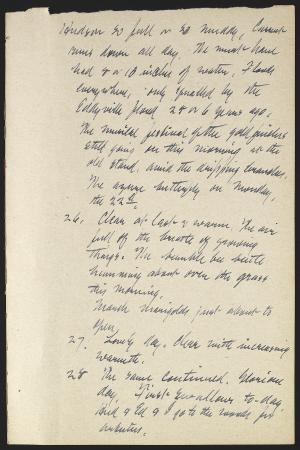 Hudson so full or so muddy, Current
runs down all day. The must have
had 8 or 10 inches of water. Floods
everywhere, only equalled by the
Eddyville flood 25 or 6 years ago.
The musical festival of the gold finches
still going on this morning in the
old stand, amid the dripping branches.
The azure butterfly on Monday,
the 22d.
26. Clear at last & warm. The air
full of the breath of growing
things. The bumble bee beetle
humming about over the grass
this morning.
Marsh Marigolds just about to
open,
27. Lovely day. Clear with increasing
warmth.
28 The same continued. Glorious
day, First swallows to-day.
and I go to the woods for
arbutus.